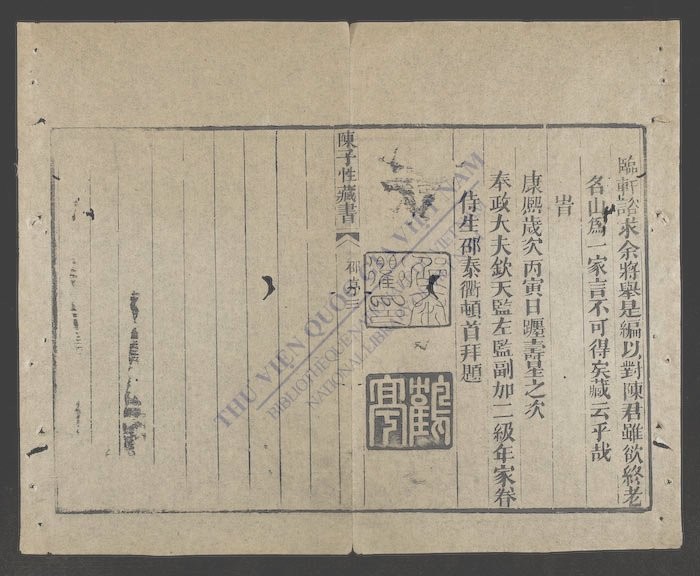 臨軒諮求余將舉是編以對陳君雖欲終老
名山為一家言不可得矣藏云乎哉
旹
康熙歲次丙寅日躔壽星之次
奉政大夫欽天監左監副加二級年家眷
侍生邵泰衢頓首拜題
陳子性藏書
邵序三
THƯ VIỆN QUỐC GIA VIỆT NAM
BIBLIOTHEQUE NATIONALE
NATIONAL LIBRARY